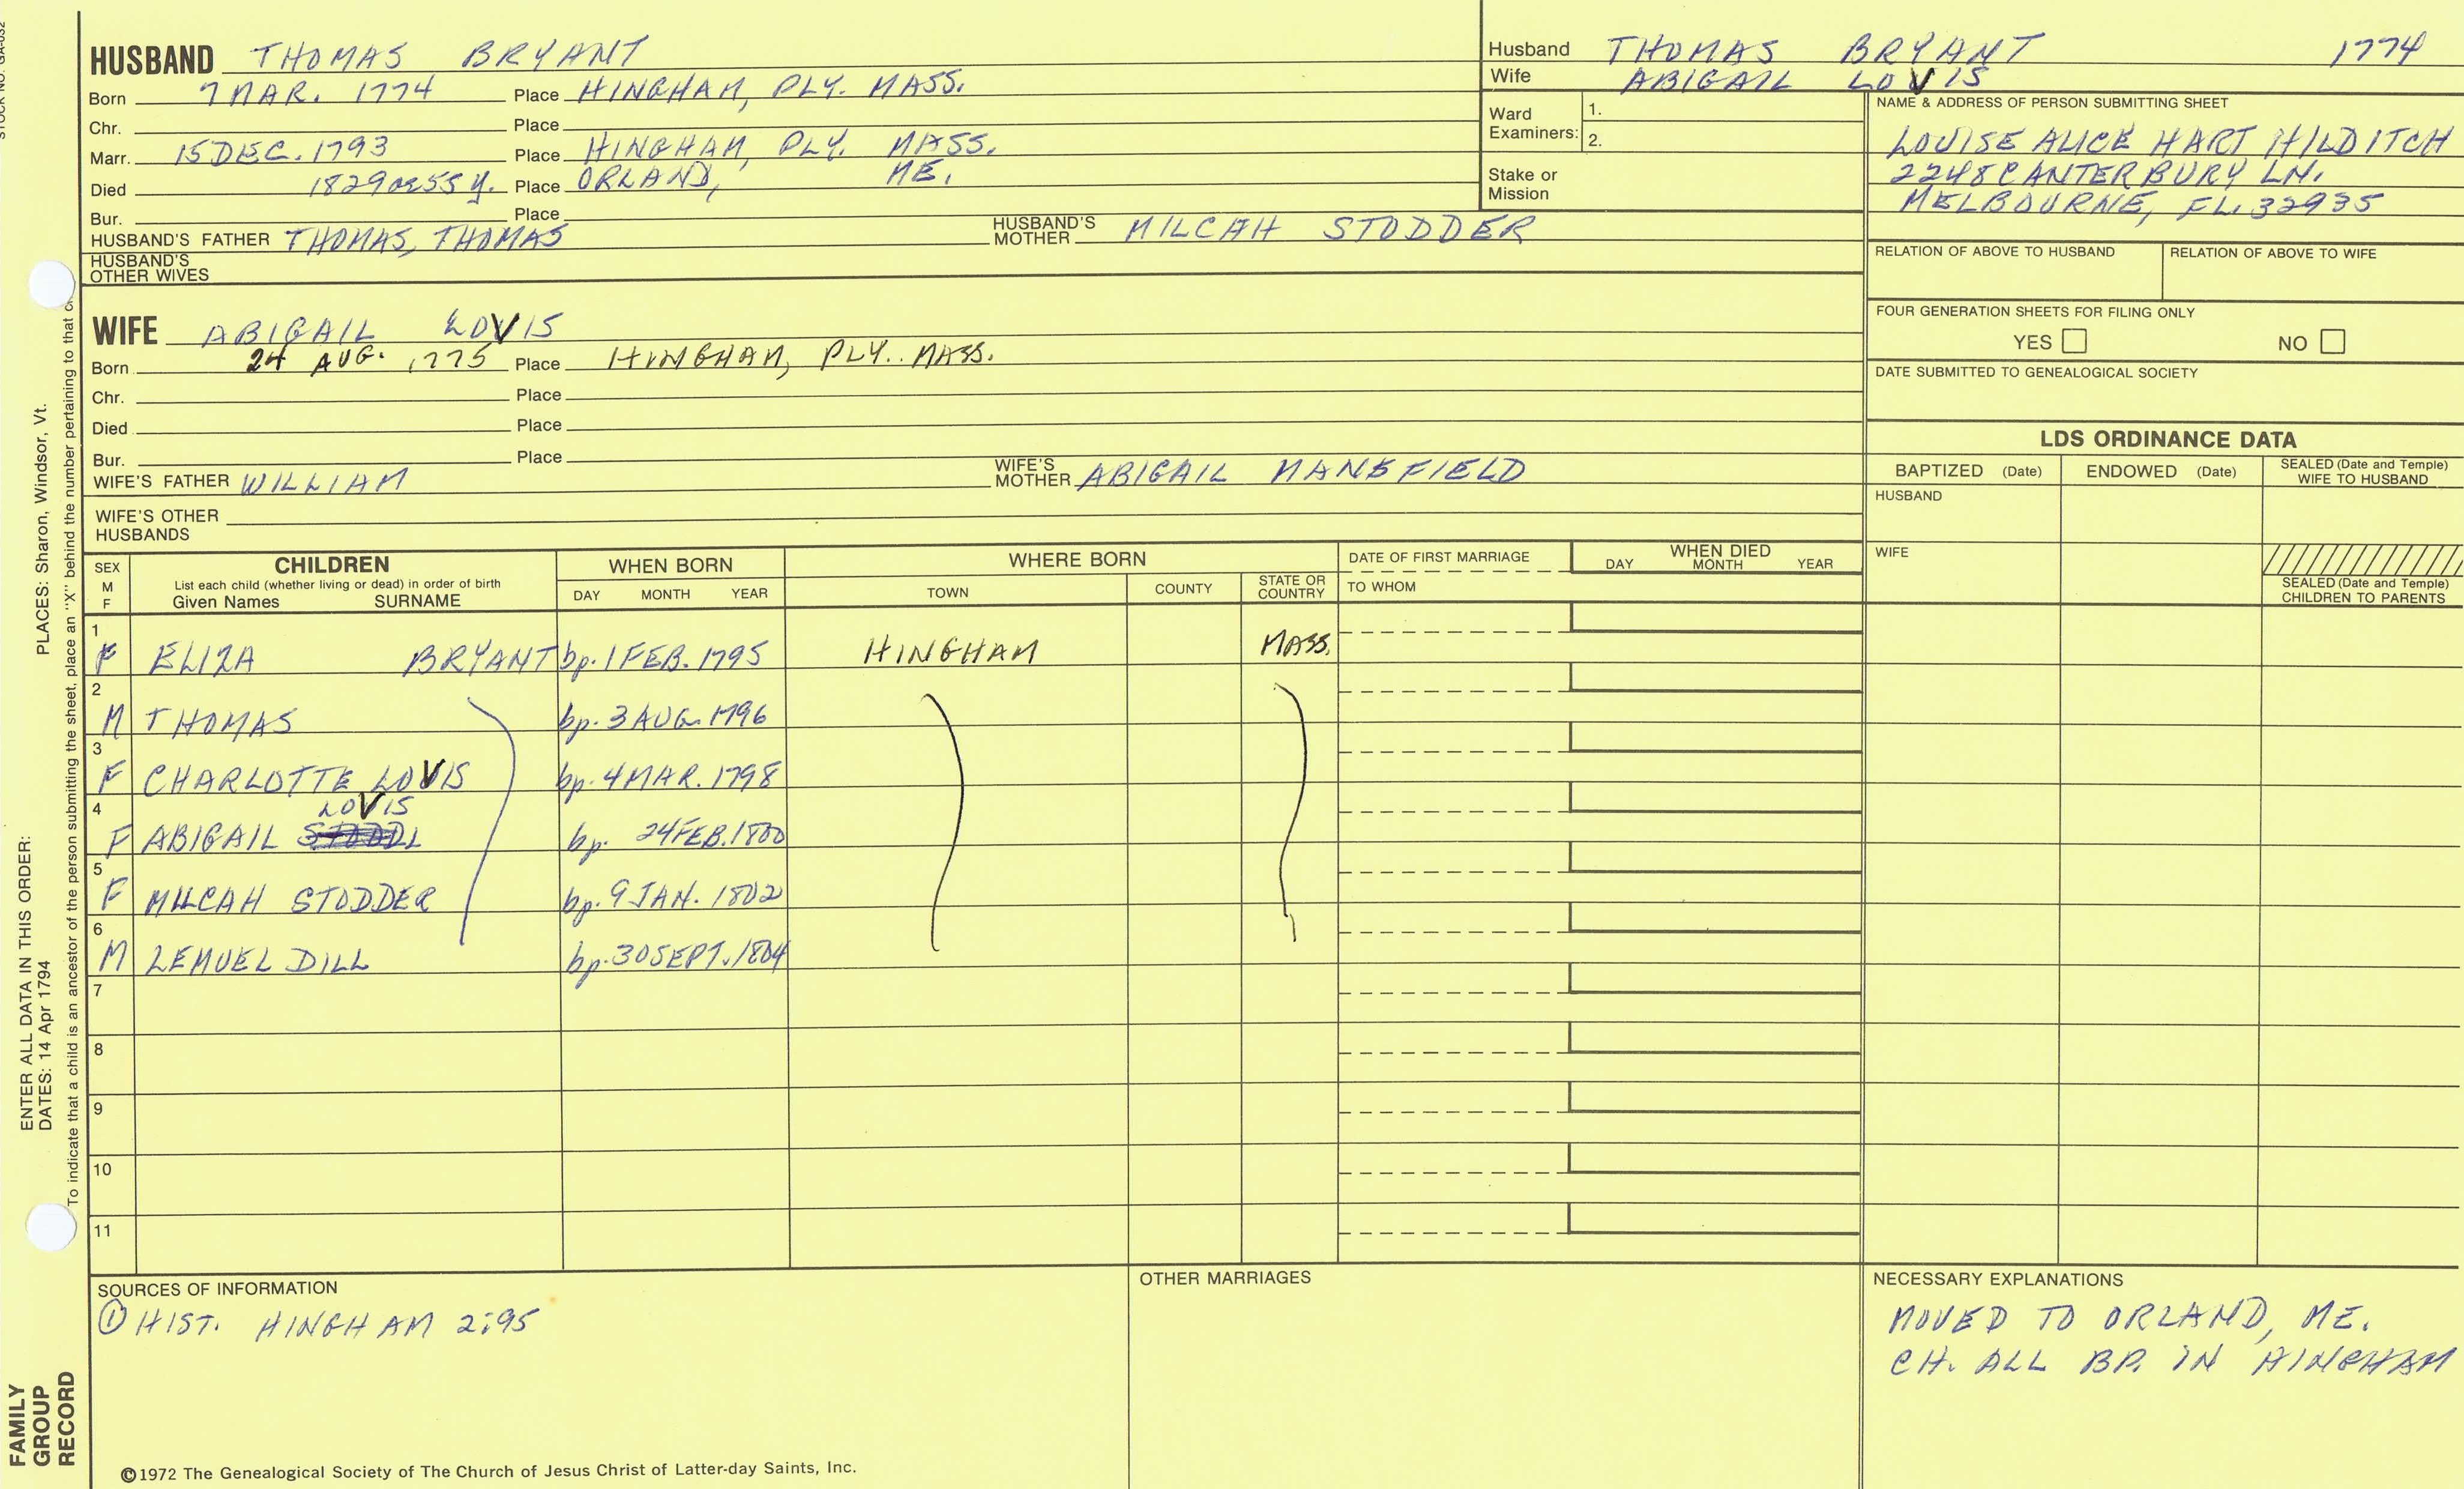 HUSBAND THOMAS BRYANT
Born 7 MAR. 1774 Place HINGHAM, PLY. MASS.
Chr. Place
Marr. 15 DEC. 1793 Place HINGHAM, PLY. MASS.
Died 1829 ae 55 y. Place ORLAND, ME.
Bur. Place
HUSBAND'S FATHER THOMAS, THOMAS HUSBAND'S MOTHER MILCAH STODDER
HUSBAND'S OTHER WIVES
Husband THOMAS BRYANT 1774
Wife ABIGAIL LOVIS
Ward Examiners: 1.
2.
Stake or Mission
NAME & ADDRESS OF PERSON SUBMITTING SHEET
LOUISE ALICE HART HILDITCH
2248 CANTERBURY LN.
MELBOURNE, FL. 32935
RELATION OF ABOVE TO HUSBAND RELATION OF ABOVE TO WIFE
FOUR GENERATION SHEETS FOR FILING ONLY
YES NO
DATE SUBMITTED TO GENEALOGICAL SOCIETY
WIFE ABIGAIL LOVIS
Born 24 AUG. 1775 Place HINGHAM, PLY.. MASS.
Chr. Place
Died Place
Bur. Place
WIFE'S FATHER WILLIAM WIFE'S MOTHER ABIGAIL MANSFIELD
WIFE'S OTHER HUSBANDS
LDS ORDINANCE DATA
BAPTIZED (Date) ENDOWED (Date) SEALED (Date and Temple) WIFE TO HUSBAND
HUSBAND
WIFE
SEALED (Date and Temple) CHILDREN TO PARENTS
SEX M F
CHILDREN
List each child (whether living or dead) in order of birth
Given Names SURNAME
WHEN BORN
DAY MONTH YEAR
WHERE BORN
TOWN COUNTY STATE OR COUNTRY
DATE OF FIRST MARRIAGE
TO WHOM
WHEN DIED
DAY MONTH YEAR
1 F ELIZA BRYANT bp. 1 FEB. 1795 HINGHAM MASS.
2 M THOMAS bp. 3 AUG. 1796
3 F CHARLOTTE LOVIS bp. 4 MAR. 1798
LOVIS
4 F ABIGAIL bp. 24 FEB. 1800
5 F MILCAH STODDER bp. 9 JAN. 1802
6 M LEMUEL DILL bp. 30 SEPT. 1804
7
8
9
10
11
SOURCES OF INFORMATION
① HIST. HINGHAM 2:95
OTHER MARRIAGES
NECESSARY EXPLANATIONS
MOVED TO ORLAND, ME.
CH. ALL BP. IN HINGHAM
©1972 The Genealogical Society of The Church of Jesus Christ of Latter-day Saints, Inc.
FAMILY
GROUP
RECORD
ENTER ALL DATA IN THIS ORDER:
DATES: 14 Apr 1794 PLACES: Sharon, Windsor, Vt.
To indicate that a child is an ancestor of the person submitting the sheet, place an "X" behind the number pertaining to that